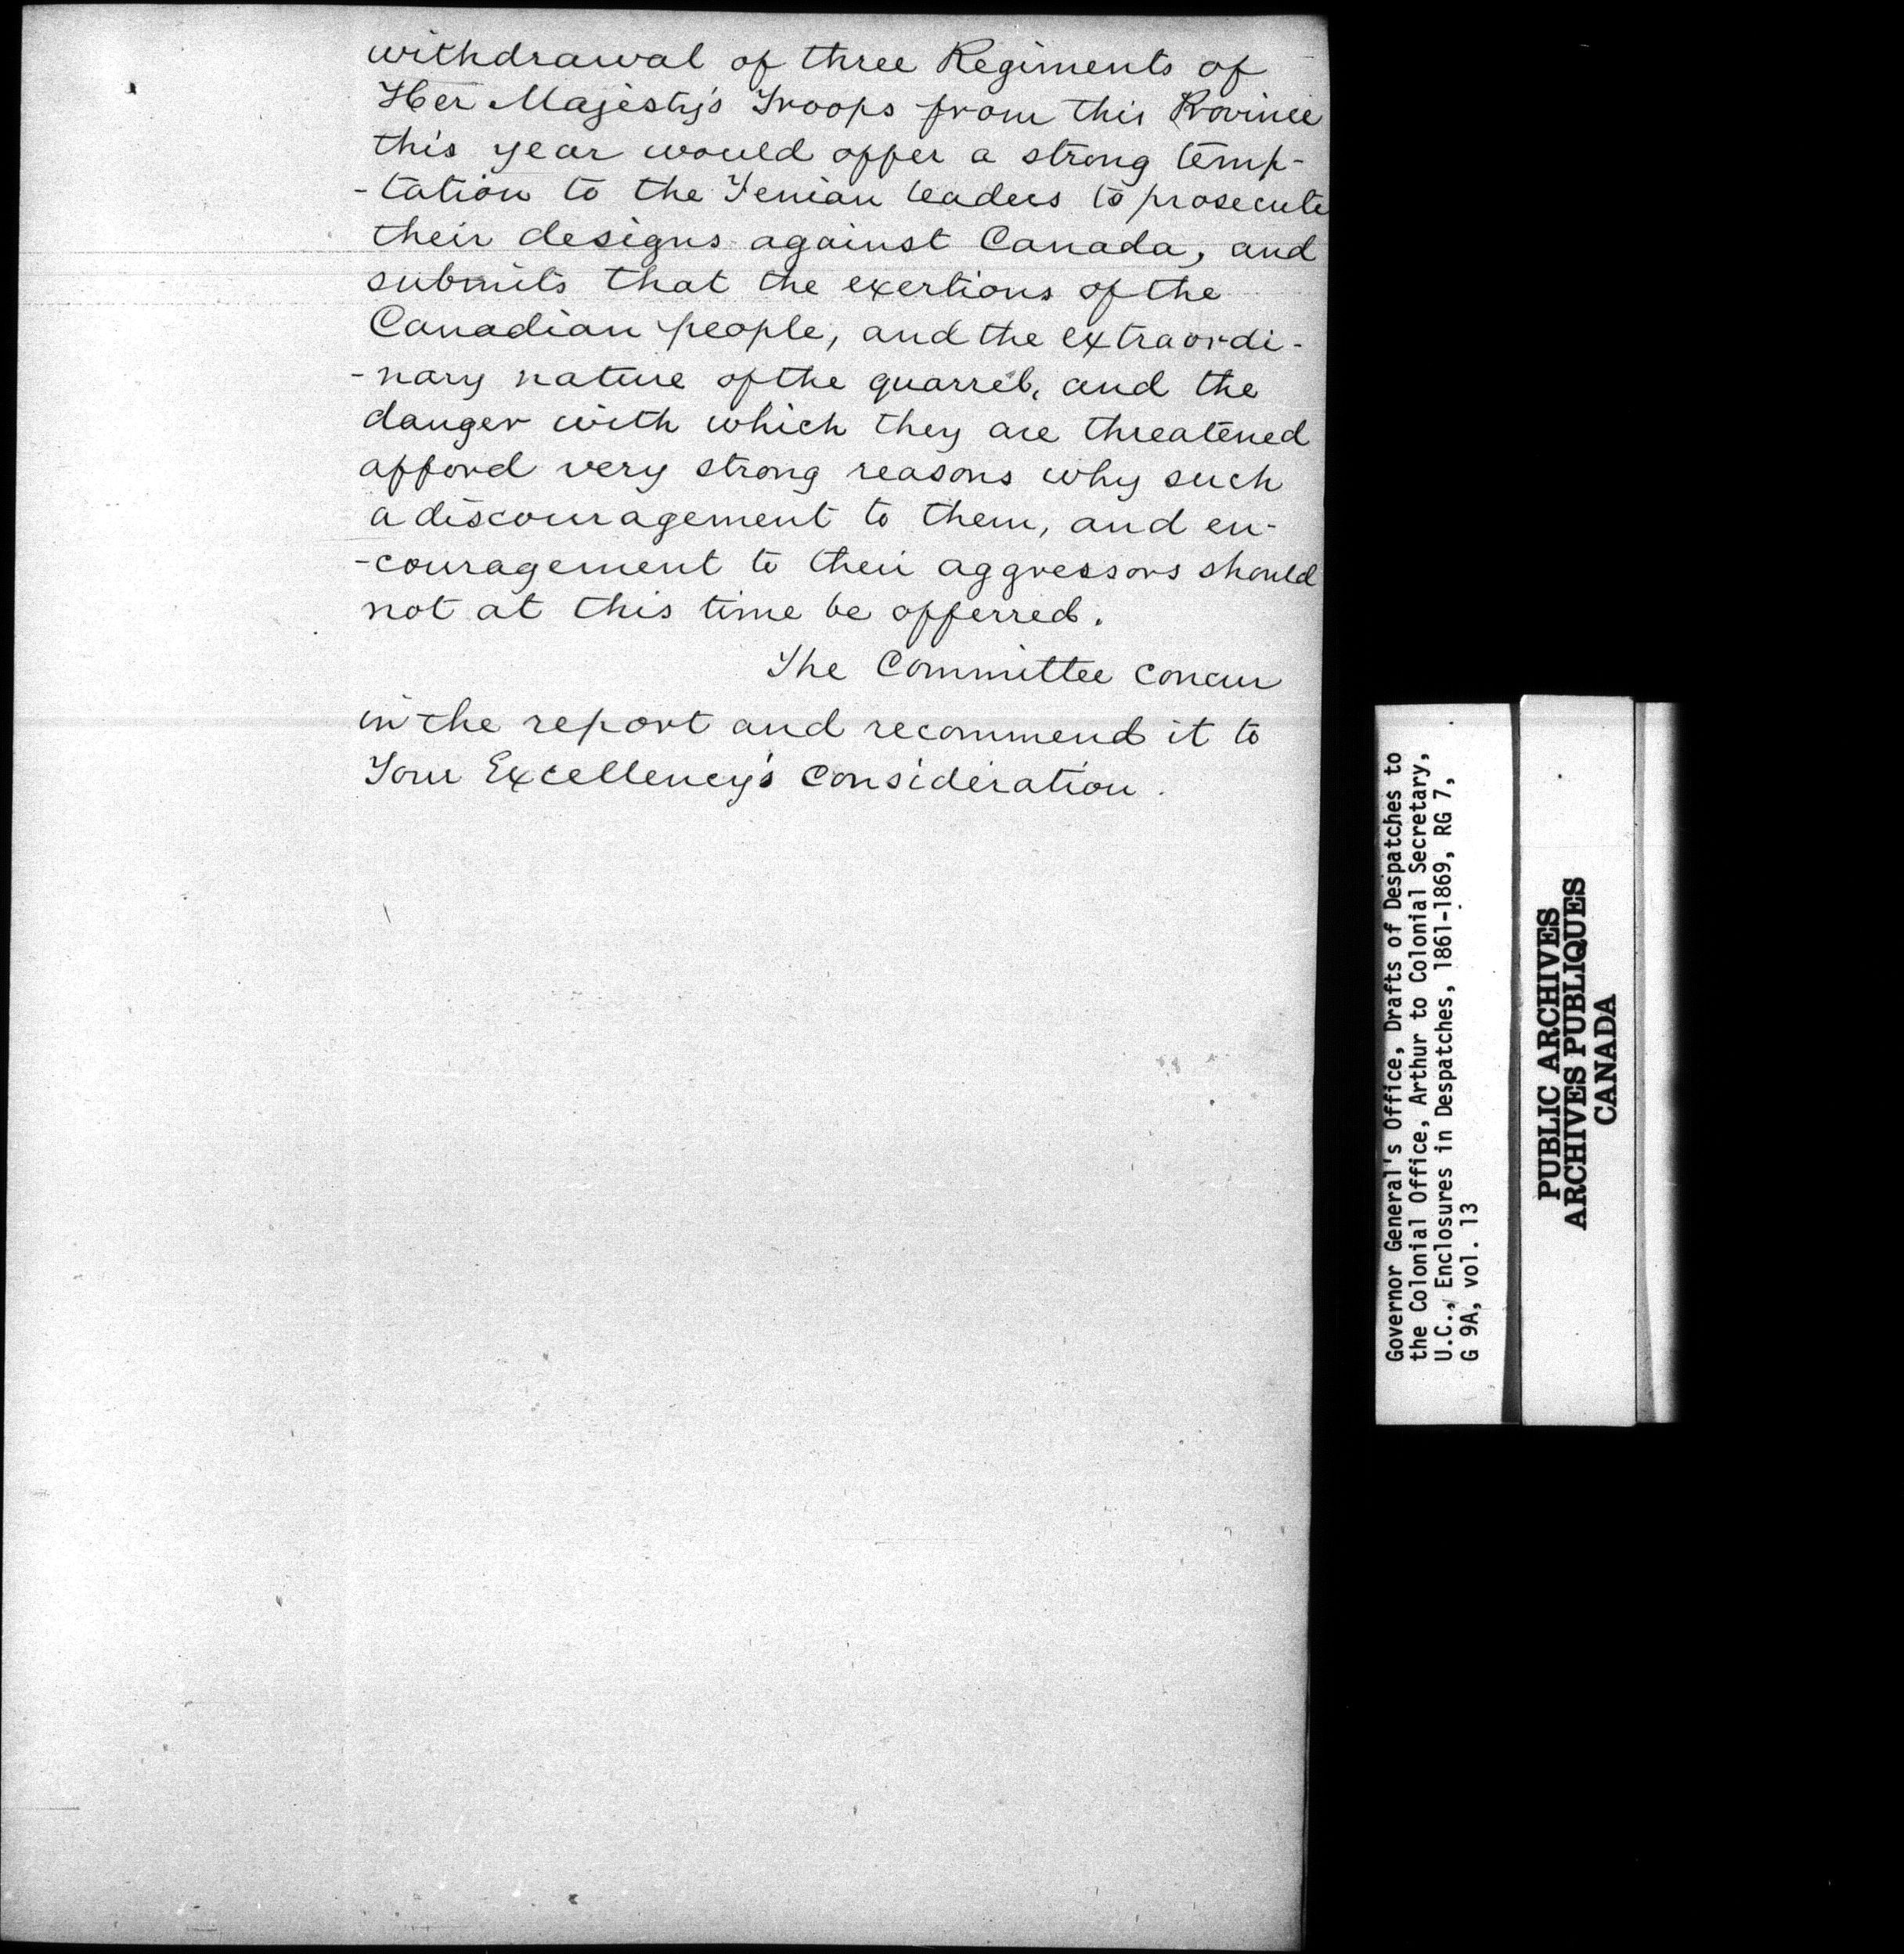 withdrawal of three Regiments of
Her Majesty's Troops from this Province
this year would offer a strong temp-
-tation to the Fenian leaders to prosecute
their designs against Canada, and
submits that the exertions of the
Canadian people, and the extraordi-
-nary nature of the quarrel, and the
danger with which they are threatened
afford very strong reasons why such
a discouragement to them, and en-
-couragement to their aggressors should
not at this time be offerred.
The Committee concur
in the report and recommend it to
Your Excellency's consideration.
Governor General's Office, Drafts of Despatches to
the Colonial Office, Arthur to Colonial Secretary,
U.C., Enclosures in Despatches, 1861-1869, RG 7,
G 9A, vol. 13
PUBLIC ARCHIVES
ARCHIVES PUBLIQUES
CANADA